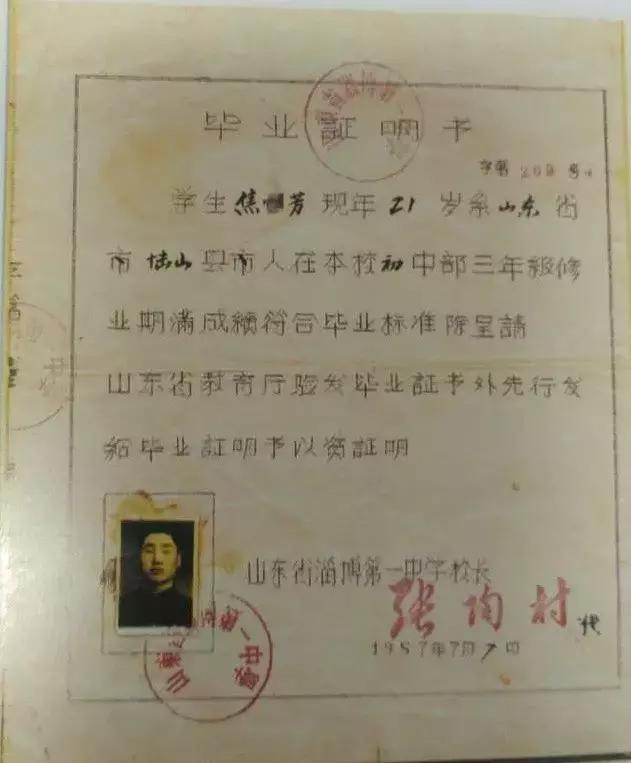 毕业証明书
字第 200 号
学生焦芳现年21岁系山东省
市陆山县市人在本校初中部三年級修
业期满成績符合毕业标准除呈請
山东省教育厅验发毕业証书外先行发
給毕业証明书以资証明
山东省淄博第一中学校长
张均村 代
1957年7月7日